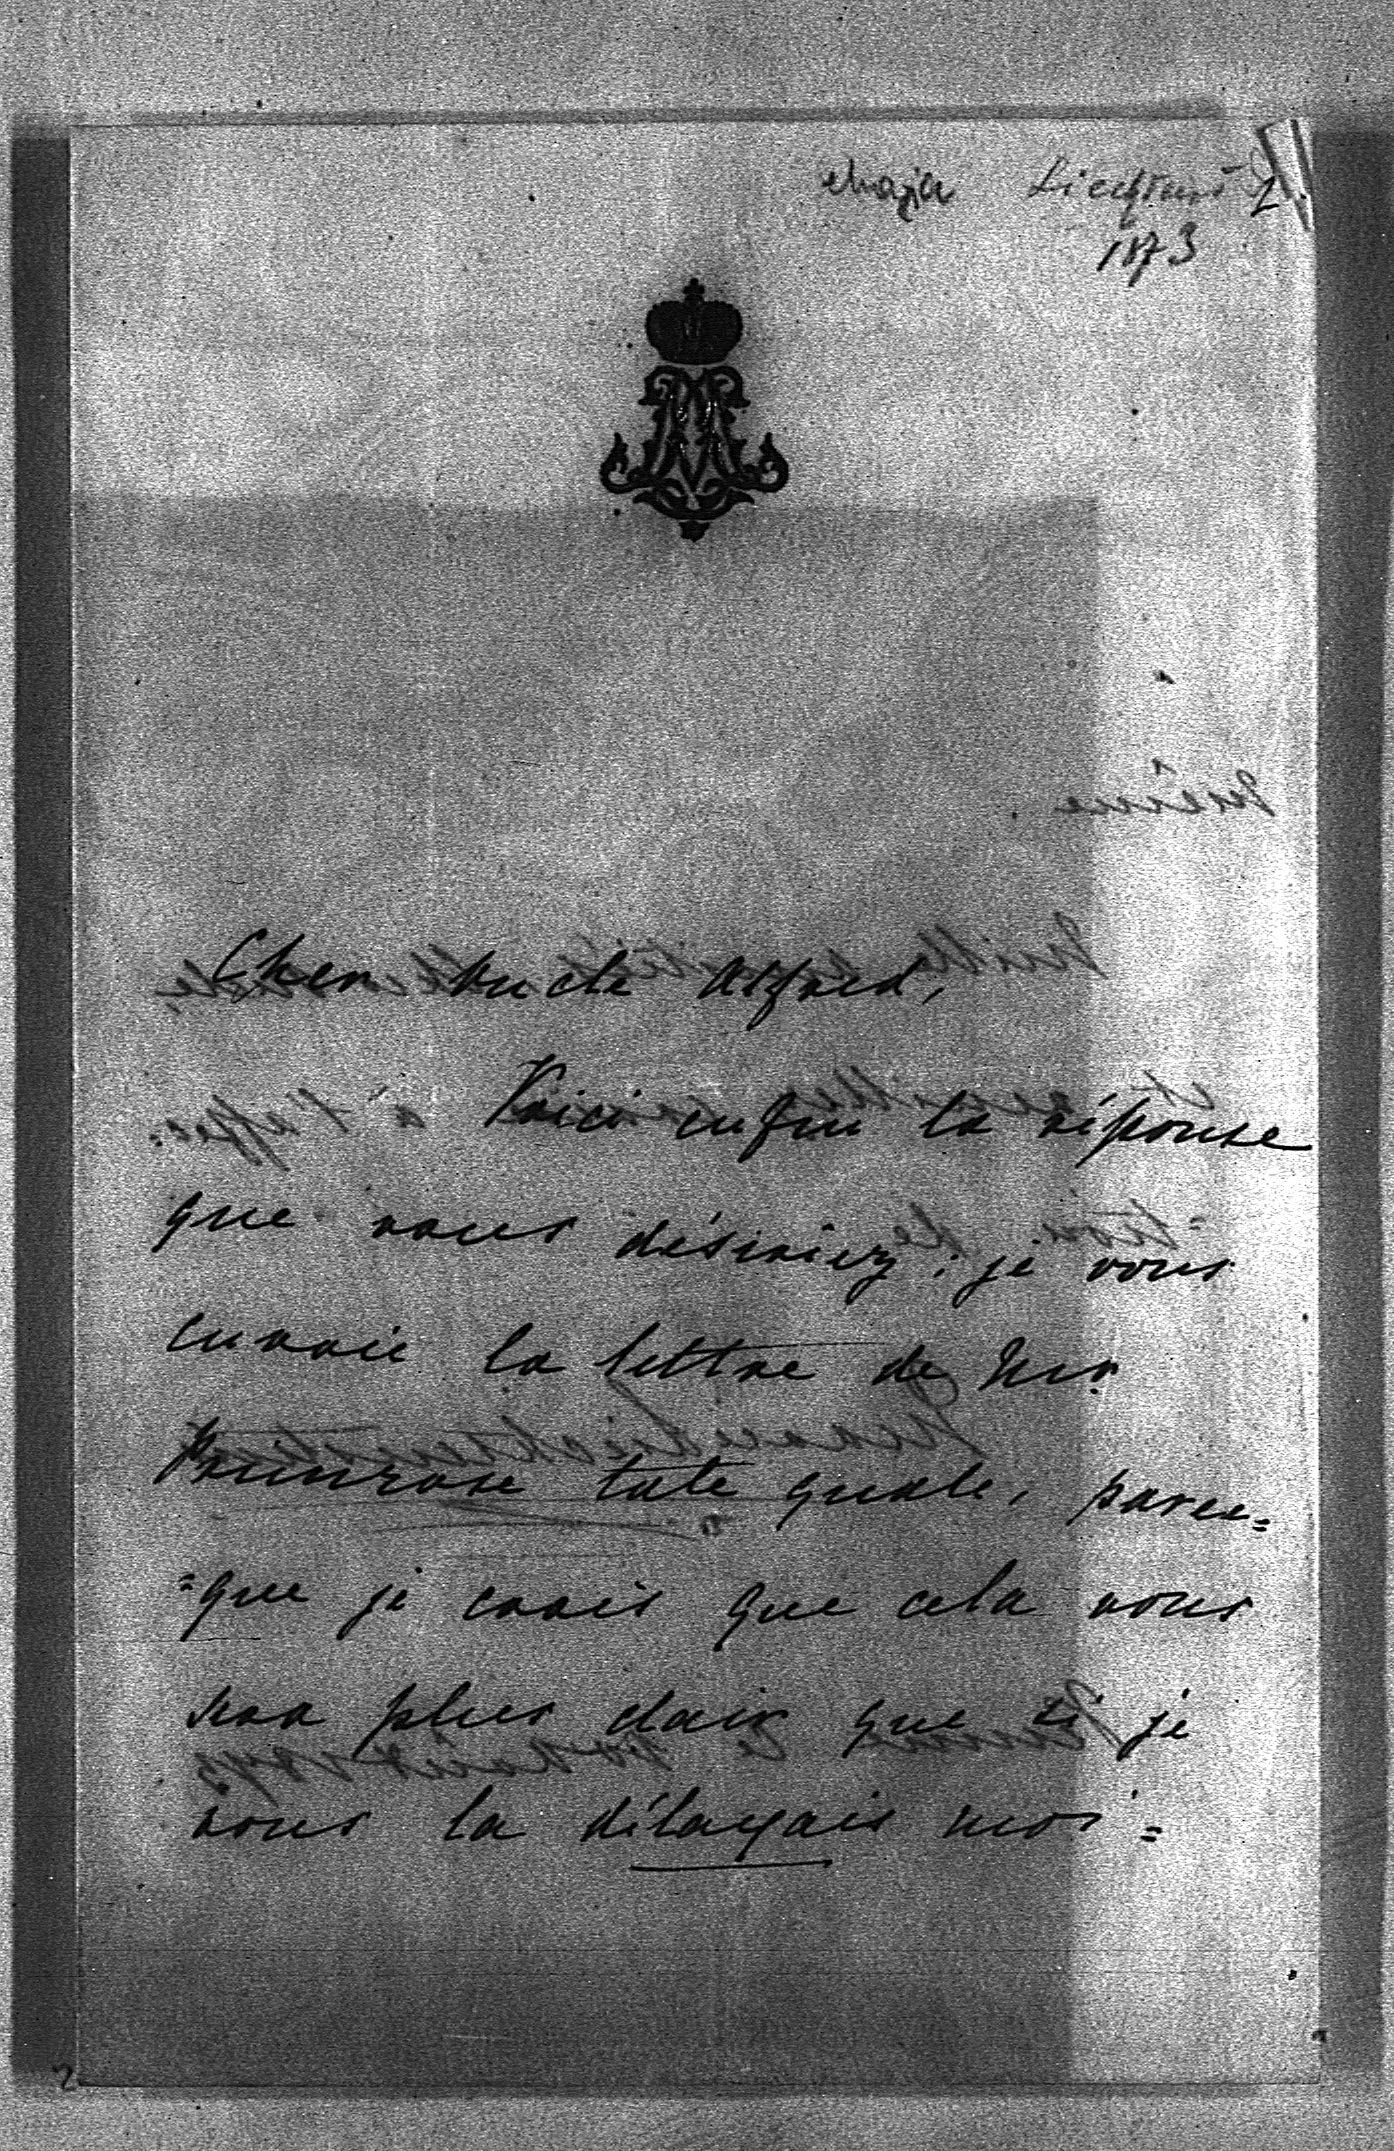 Liechtens
1873
Cher oncle Alfred,
Voici enfin la réponse
que vous désiriez; je vous
envoie la lettre de Mr.
Primrose tale quale, parce=
=que je crois que cela vous
sera plus clair que si je
vous la délayais moi=